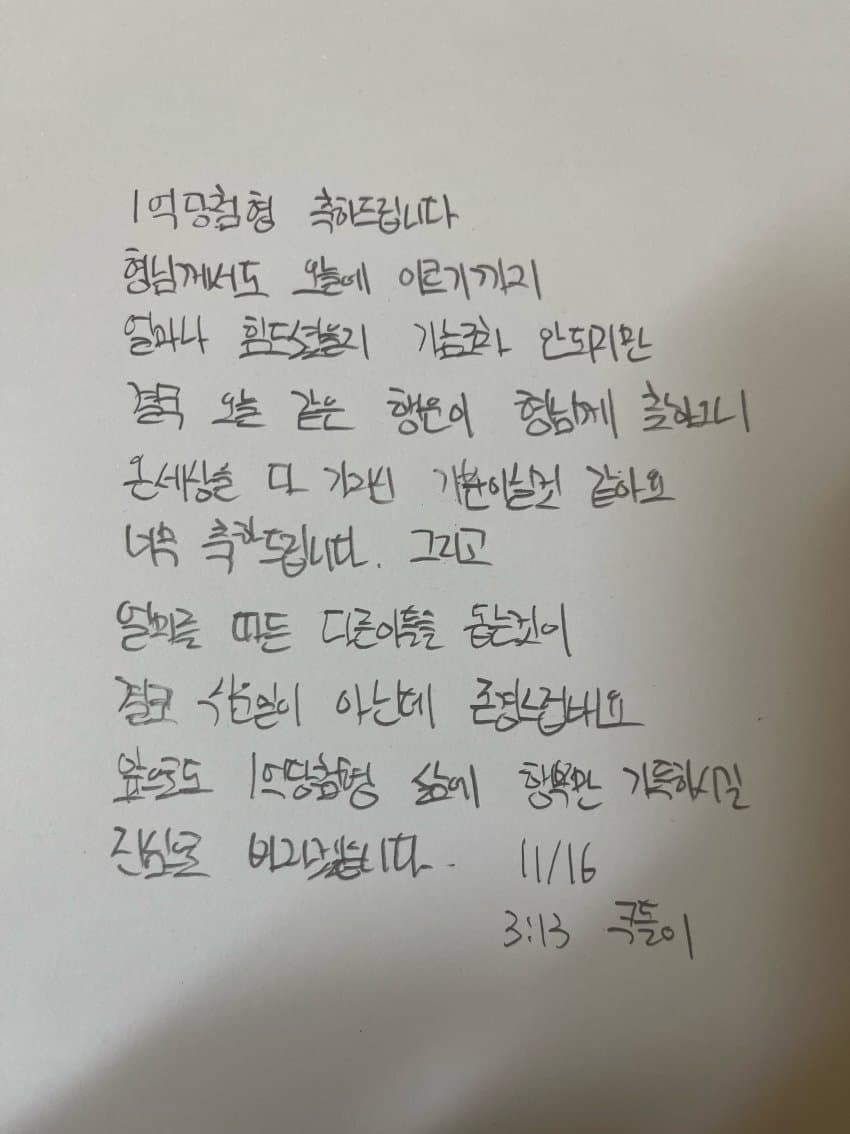 1억당첨형 축하드립니다
형님께서도 오늘에 이르기까지
얼마나 힘드셨을지 가늠조차 안되지만
결국 오늘 같은 행운이 형님께 찾아오니
온세상을 다 가지신 기분이실것 같아요
너무 축하드립니다. 그리고
얼마를 따든 다른이들을 돕는것이
결코 쉬운일이 아닌데 존경스럽네요
앞으로도 1억당첨형 삶에 행복만 가득하시길
진심으로 바라겠습니다. 11/16
3:13 국돌이